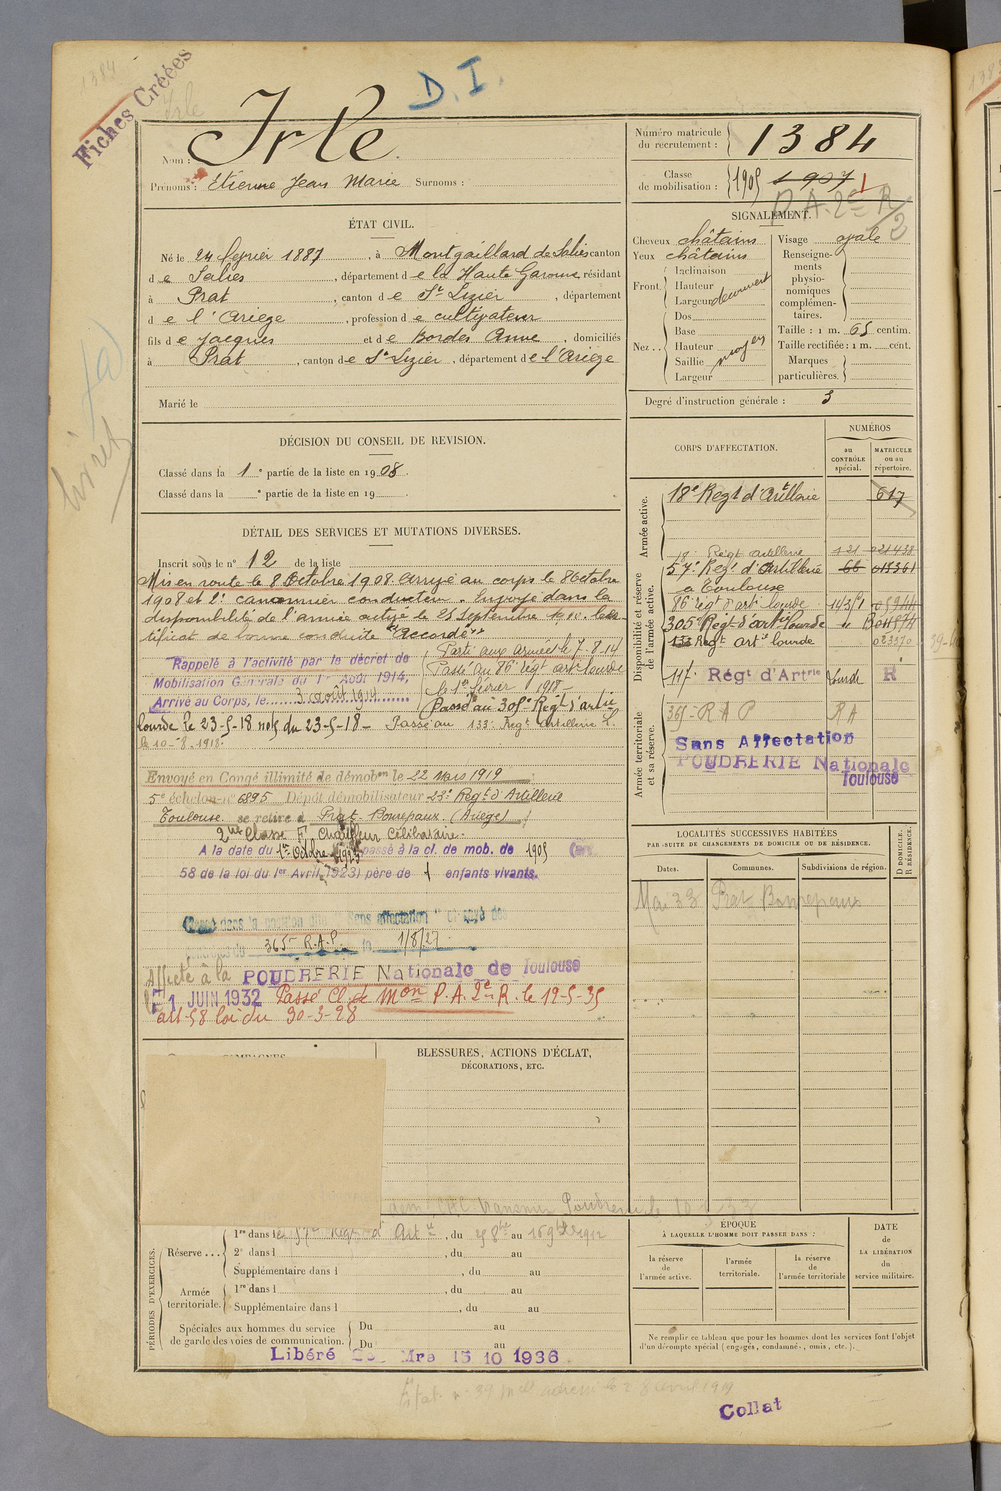 1384
Irle
Fiches Créées
D. I.
Nom : Irle
Prénoms : Etienne Jean Marie Surnoms :
Numéro matricule du recrutement : 1384
Classe de mobilisation : 1905 1907
P A. 2e R/2
ÉTAT CIVIL.
Né le 24 février 1887, à Montgaillard de Salies canton
de Salies, département de la Haute Garonne, résidant
à Prat, canton de St Lizier, département
de l'Ariège, profession de cultivateur
fils de Jacques et de Bordes Anne, domiciliés
à Prat, canton de St Lizier, département de l'Ariège
Marié le
SIGNALEMENT.
Cheveux châtains
Yeux châtains
Front. Inclinaison
Hauteur
Largeur découvert
Nez .. Dos
Base
Hauteur moyen
Saillie
Largeur
Visage ovale
Renseignements physionomiques complémentaires.
Taille : 1 m. 65 centim.
Taille rectifiée : 1 m. cent.
Marques particulières.
Degré d'instruction générale : 3
DÉCISION DU CONSEIL DE REVISION.
Classé dans la 1e partie de la liste en 1908.
Classé dans la e partie de la liste en 19
Livret
DÉTAIL DES SERVICES ET MUTATIONS DIVERSES.
Inscrit sous le n° 12 de la liste
Mis en route le 8 Octobre 1908. Arrivé au corps le 8 Octobre
1908 et 2e canonnier conducteur. Envoyé dans la
disponibilité de l'armée active le 25 Septembre 1910. Cer-
tificat de bonne conduite "Accordé"
Rappelé à l'activité par le décret de
Mobilisation Générale du 1er Août 1914,
Arrivé au Corps, le 3 août 1914
Parti aux armées le 7-8-14
Passé au 86e régt arti lourde
le 1er février 1918 -
Passé au 305e Régt d'artie
lourde le 23-5-18 nos du 23-5-18 - Passé au 133e Régt Artillerie L.
le 10-8-1918.
Envoyé en Congé illimité de démobon le 22 Mars 1919
5e échelon n° 6895 Dépôt démobilisateur 23e Régt d'Artillerie
Toulouse se retire à Prat-Bonrepaux (Ariège)
2me Classe F. Chauffeur Célibataire.
A la date du 1er Octobre passé à la cl. de mob. de 1905
58 de la loi du 1er Avril 1923) père de 1 enfants vivants.
Sans affectation
365e R.A.P. 1/8/27
Affecté à la POUDRERIE Nationale de Toulouse
le 1 JUIN 1932 Passé Cl. de Mon P.A. 2e R. le 12-5-35
art-58 loi du 30-3-28
CORPS D'AFFECTATION.
NUMÉROS
au CONTRÔLE spécial.
MATRICULE ou au répertoire.
Armée active.
18e Regt d'Artillerie 617
Disponibilité et réserve de l'armée active.
Régt Artillerie 121
57e Regt d'Artillerie 66
à Toulouse
86e régt d'arti lourde 143/1
305e Régt d'arti lourde
133 Regt artie lourde
117e Régt d'Artrie lourde R
Armée territoriale et sa réserve.
365e R A P RA
Sans Affectation
POUDRERIE Nationale
Toulouse
LOCALITÉS SUCCESSIVES HABITÉES
PAR SUITE DE CHANGEMENTS DE DOMICILE OU DE RÉSIDENCE.
Dates. Communes. Subdivisions de région. D DOMICILE. R RÉSIDENCE.
Mai 33 Prat Bonrepaux
CAMPAGNES
BLESSURES, ACTIONS D'ÉCLAT,
DÉCORATIONS, ETC.
PÉRIODES D'EXERCICES.
Réserve ... 1re dans le 57e Regt d'Artie, du au 1912
2e dans l , du au
Supplémentaire dans l , du au
Armée territoriale. 1re dans l , du au
Supplémentaire dans l , du au
Spéciales aux hommes du service de garde des voies de communication. Du au
Du au
Libéré Mre 15 10 1936
ÉPOQUE
À LAQUELLE L'HOMME DOIT PASSER DANS :
la réserve de l'armée active.
l'armée territoriale.
la réserve de l'armée territoriale
DATE DE LA LIBÉRATION du service militaire.
Ne remplir ce tableau que pour les hommes dont les services font l'objet
d'un décompte spécial (engagés, condamnés, omis, etc.).
Collat